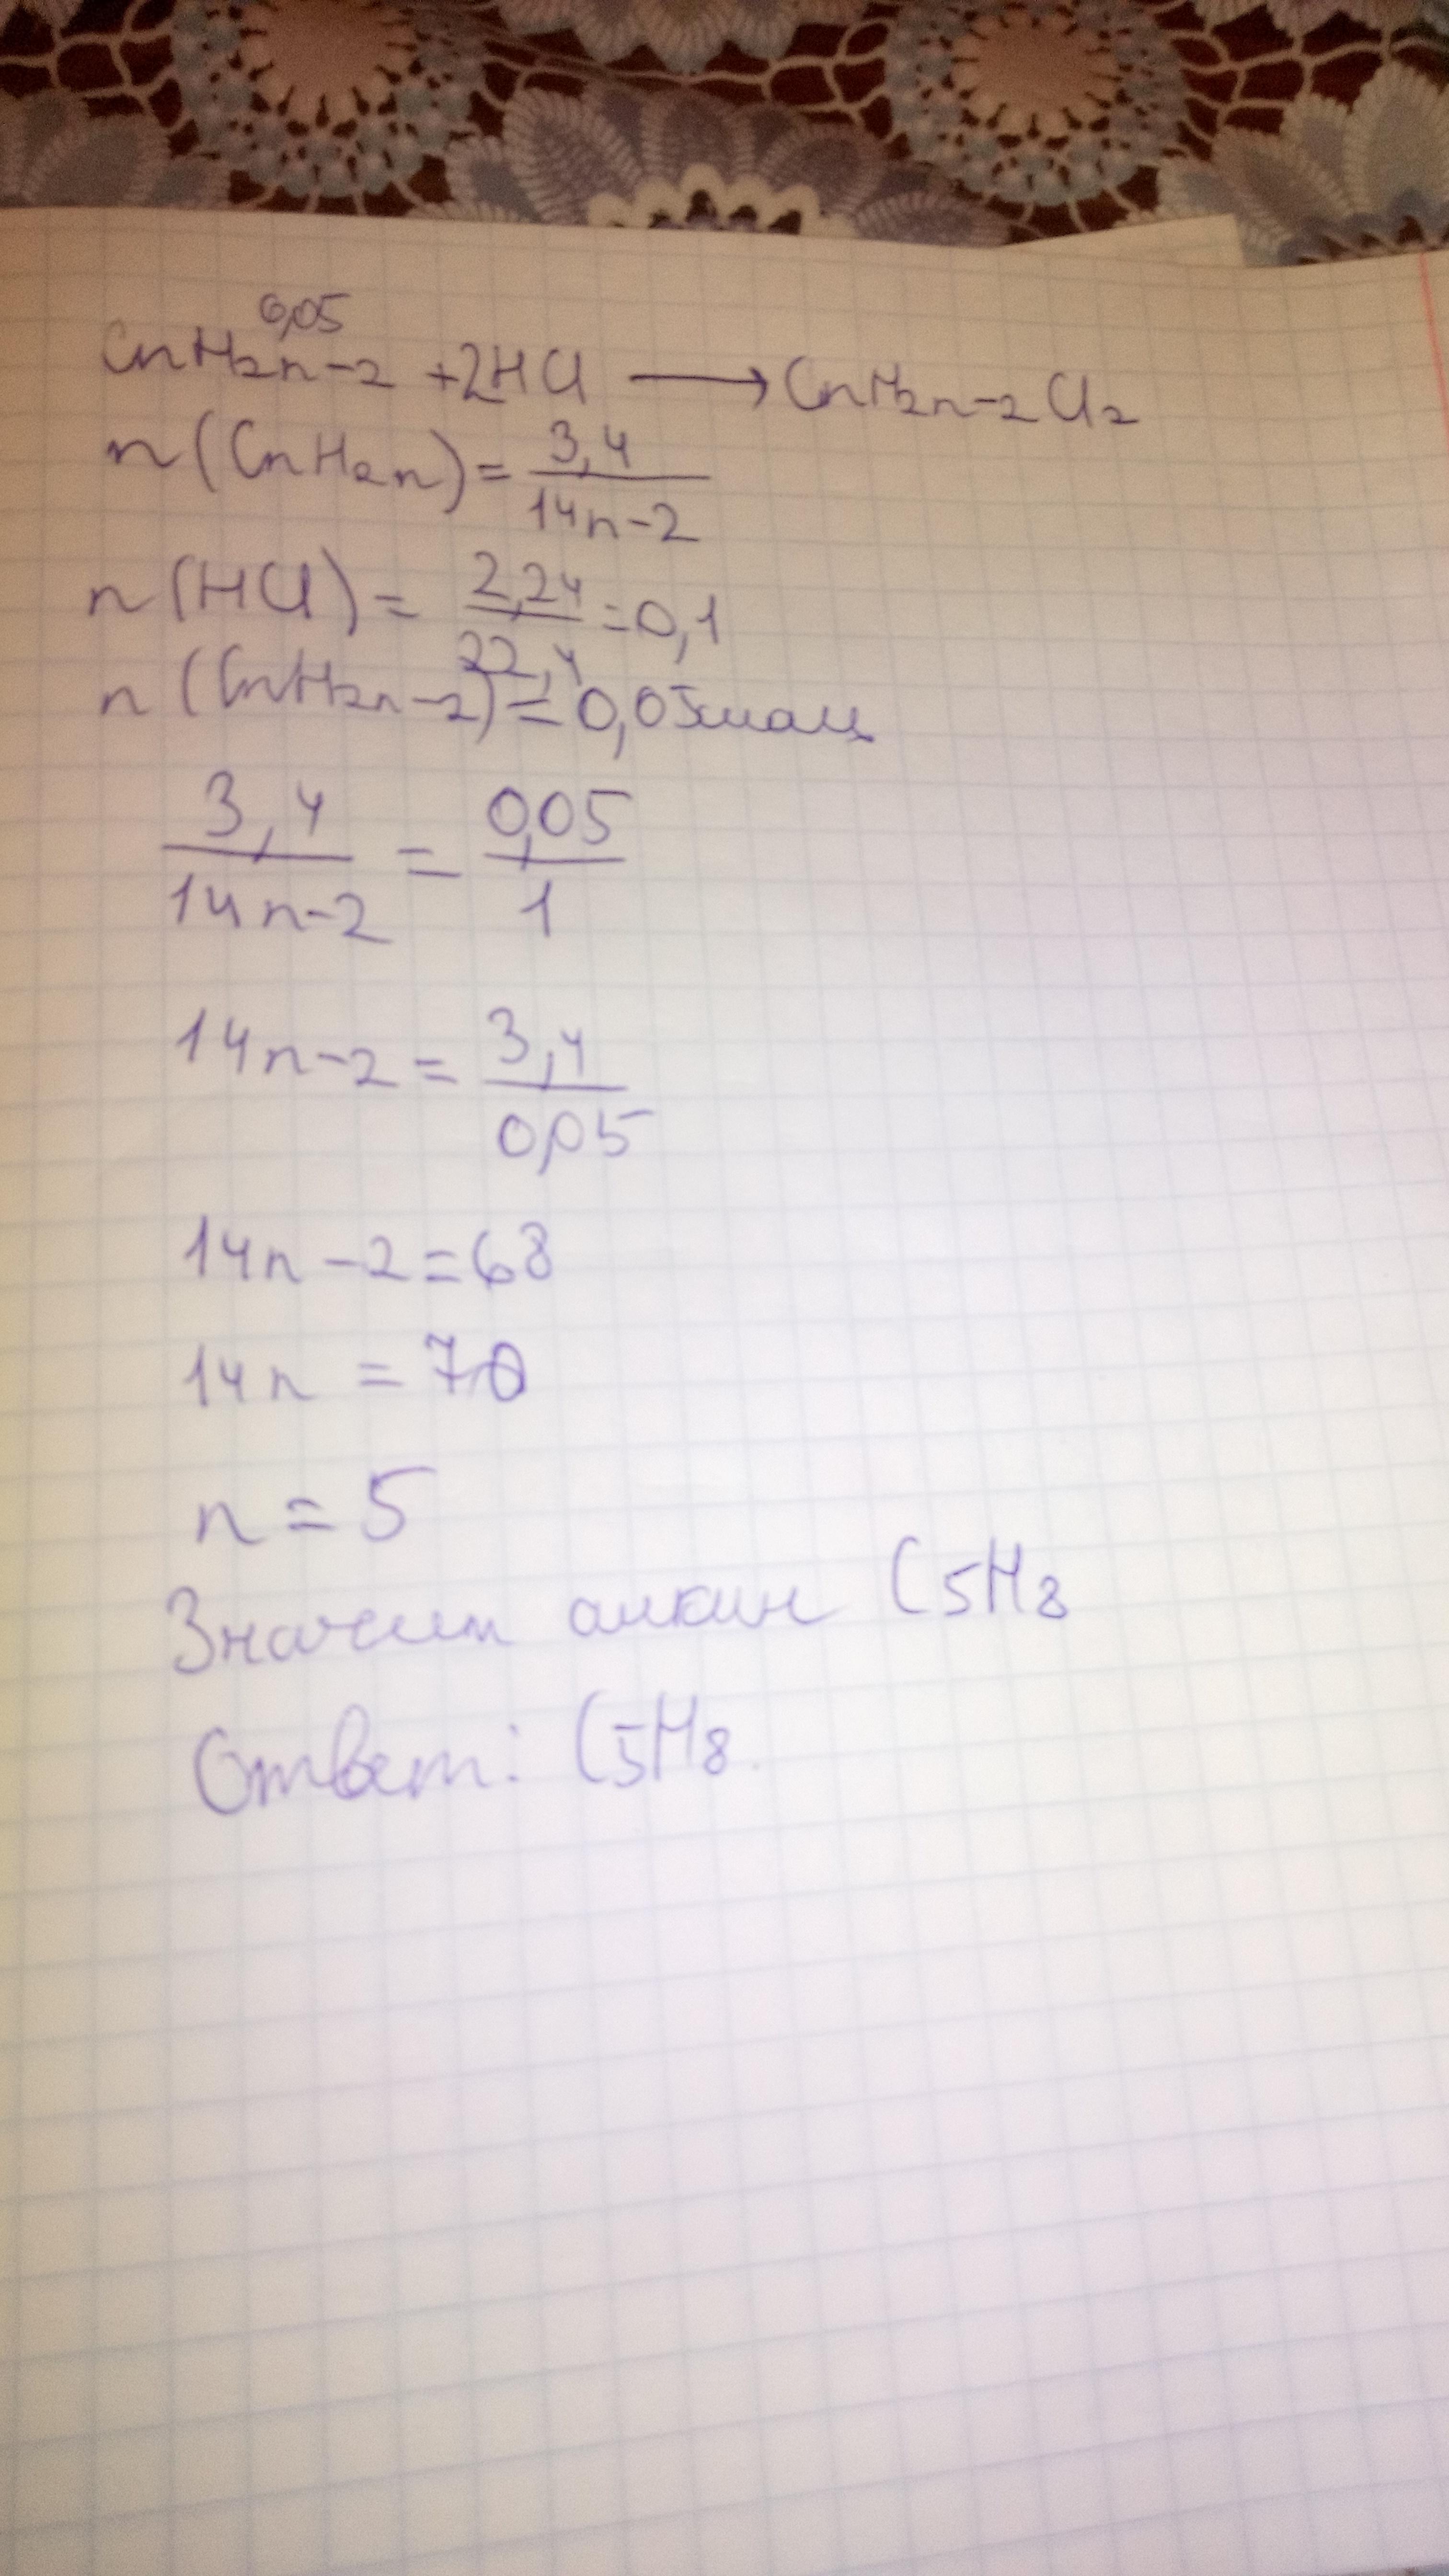 0,05
CnH2n-2 + 2HCl → CnH2n-2Cl2
n(CnH2n) = 3,4 / 14n-2
n(HCl) = 2,24 / 22,4 = 0,1
n(CnH2n-2) = 0,05моль
3,4 / 14n-2 = 0,05 / 1
14n-2 = 3,4 / 0,05
14n-2=68
14n = 70
n = 5
Значит алкин C5H8
Ответ: C5H8.